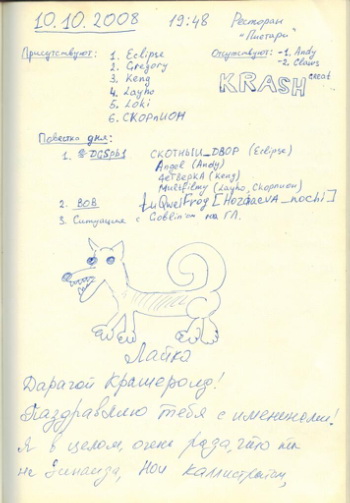 10.10.2008 19:48 Ресторан
"Пиетари"
Присутствуют: 1. Eclipse
2. Gregory
3. Keng
4. Layho
5. Loki
6. СКОРПИОН
Отсутствуют: -1. Andy
-2. Claws
KRASH
Повестка дня:
1. СКОТНЫЙ_ДВОР (Eclipse)
Angel (Andy)
4ЕТВЕРКА (Keng)
Multfilmy (Layho, Скорпион)
2. BOB
3. Ситуация с Goblinом на ГЛ.
Лайка
Дарагой Крашеролд!
Паздравляю тебя с именинами!
Я в целом, очень рада, что ты
не Зинаида, Нои Каллистратом,